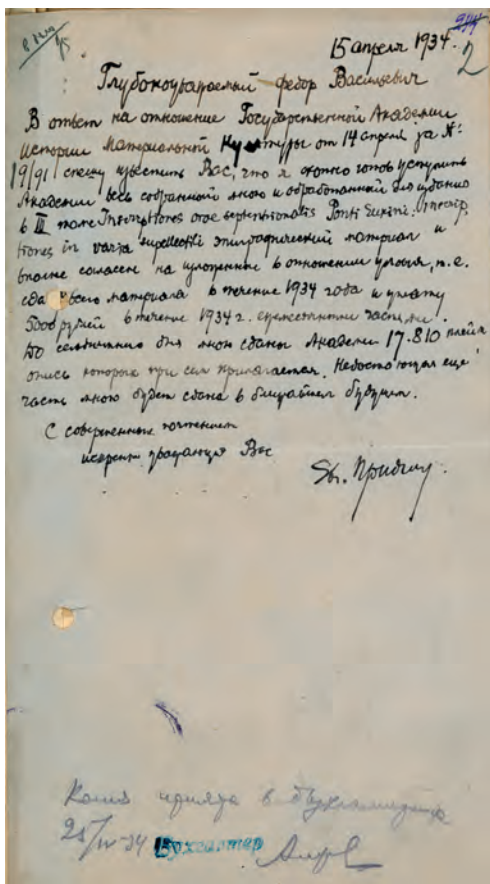 15 апреля 1934.
2
Глубокоуважаемый Федор Васильевич
В ответ на отношение Государственной Академии
Истории Материальной Культуры от 14 апреля за №
19/91 спешу известить Вас, что я охотно готов уступить
Академии весь собранный мною и обработанный для издания
в III томе Inscriptiones orae septentrionalis Ponti Euxini: Inscrip-
tiones in varia supellectili эпиграфический материал и
вполне согласен на изложенные в отношении условия, т. е.
сдача всего материала в течение 1934 года и уплату
5000 рублей в течение 1934 г. ежемесячными частями.
До сегодняшнего дня мною сданы Академии 17.810
опись которых при сем прилагается. Недостающая еще
часть мною будет сдана в ближайшем будущем.
С совершенным почтением
искренно уважающий Вас
Евг. Придик.
Копия принята в бухгалтерию
25/IV-34 Бухгалтер